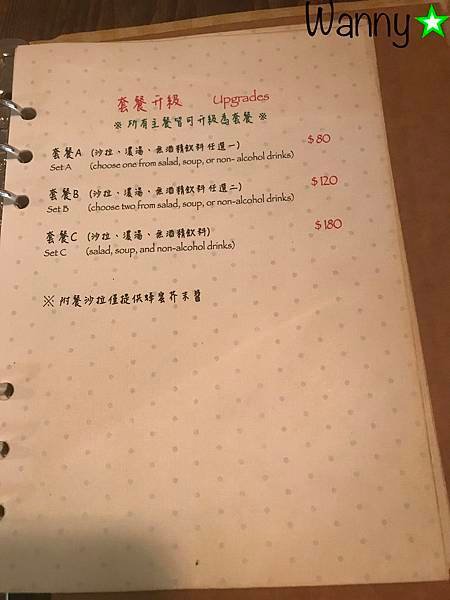 Wanny
套餐升級 Upgrades
※ 所有主餐皆可升級為套餐 ※
套餐A (沙拉、濃湯、無酒精飲料任選一) $80
Set A (choose one from salad, soup, or non- alcohol drinks)
套餐B (沙拉、濃湯、無酒精飲料任選二) $120
Set B (choose two from salad, soup, or non- alcohol drinks)
套餐C (沙拉、濃湯、無酒精飲料) $180
Set C (salad, soup, and non-alcohol drinks)
※ 附餐沙拉僅提供蜂蜜芥末醬